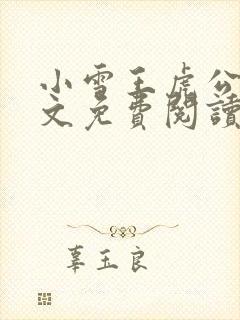 小雪王虎公
文免費閱讀
辜玉良